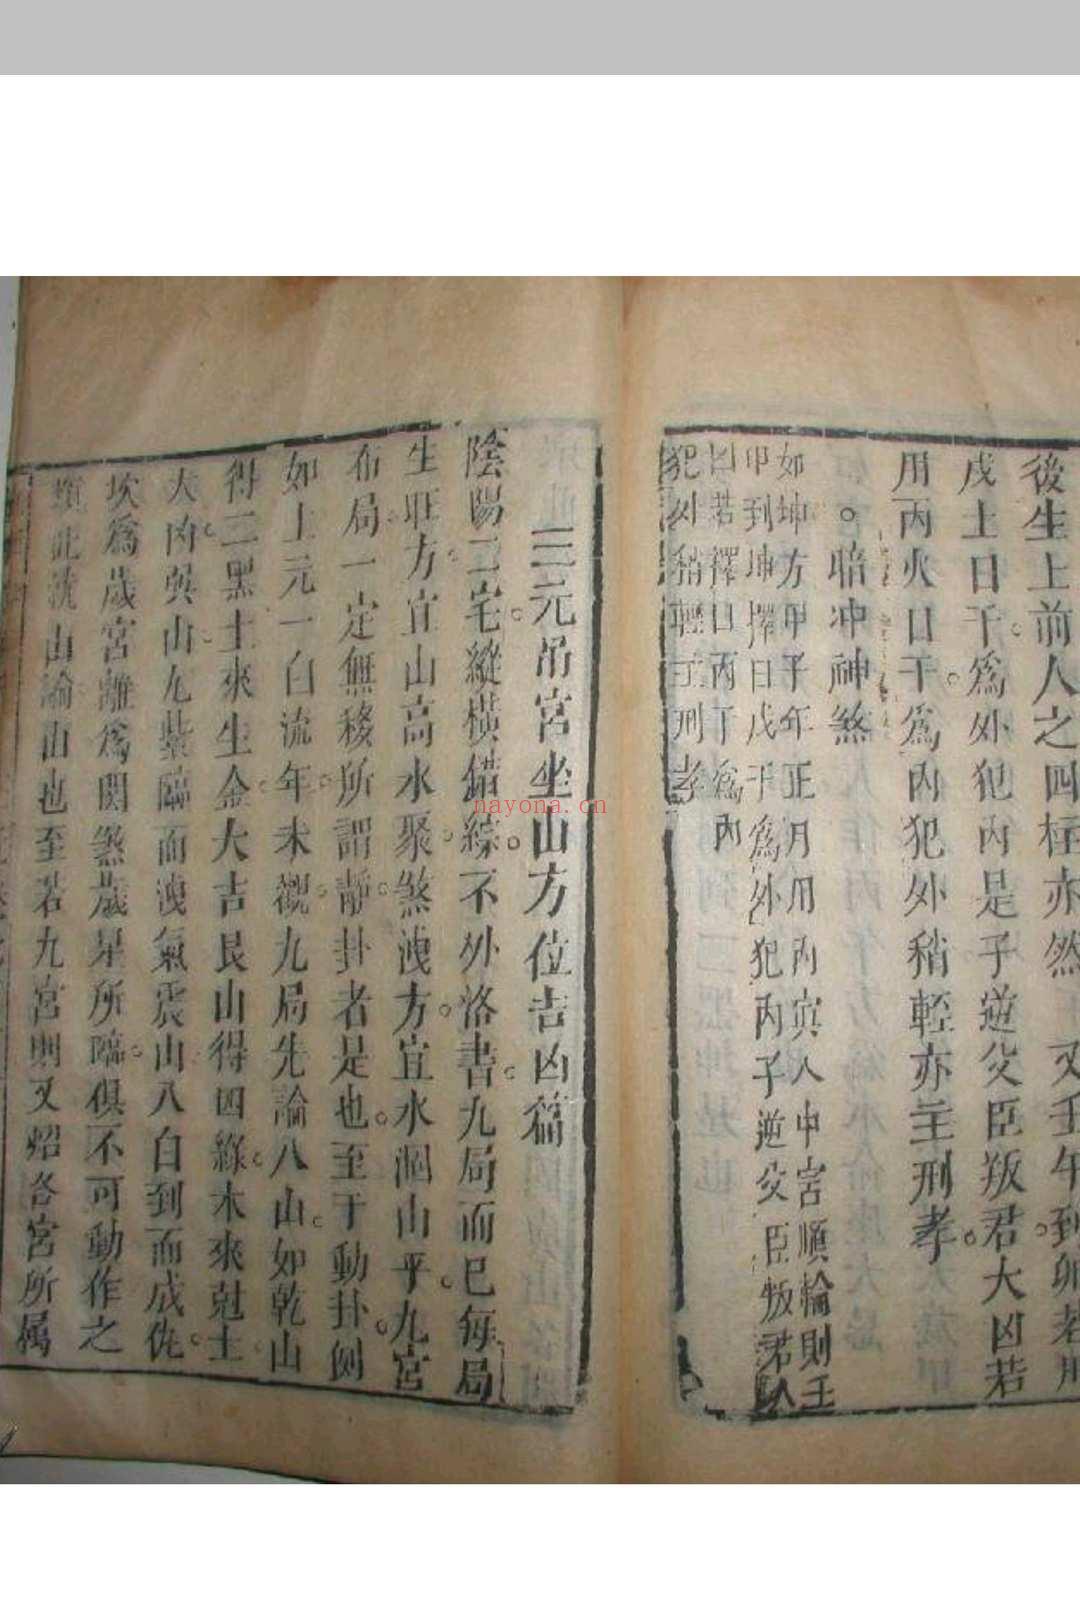 後生上前人之四柱亦然又壬午到卯若用
戊土日干為外犯內是子逆父臣叛君大凶若
用丙火日干為內犯外稍輕亦主刑孝
暗冲神煞
如坤方甲子年正月用丙寅入中宮順輪則壬
甲到坤擇日戊干為外犯內子逆父臣叛君
凶若擇日丙丁為內
犯外稍輕主刑孝
三元吊宮坐山方位吉凶篇
陰陽二宅縱橫錯綜不外洛書九局而已每局
生旺方宜山高水聚煞洩方宜水涸山平九宮
布局一定無移所謂靜卦者是也至于動卦側
如上元一白流年未觀九局先論八山如乾山
得二黑土來生金大吉艮山得四綠木來尅土
大凶巽山九紫臨而洩氣震山八白到而成仇
坎為歲宮離為関煞歲星所臨俱不可動作之
類此流山論山也至若九宮則又炤各宮所属
nayona.cn